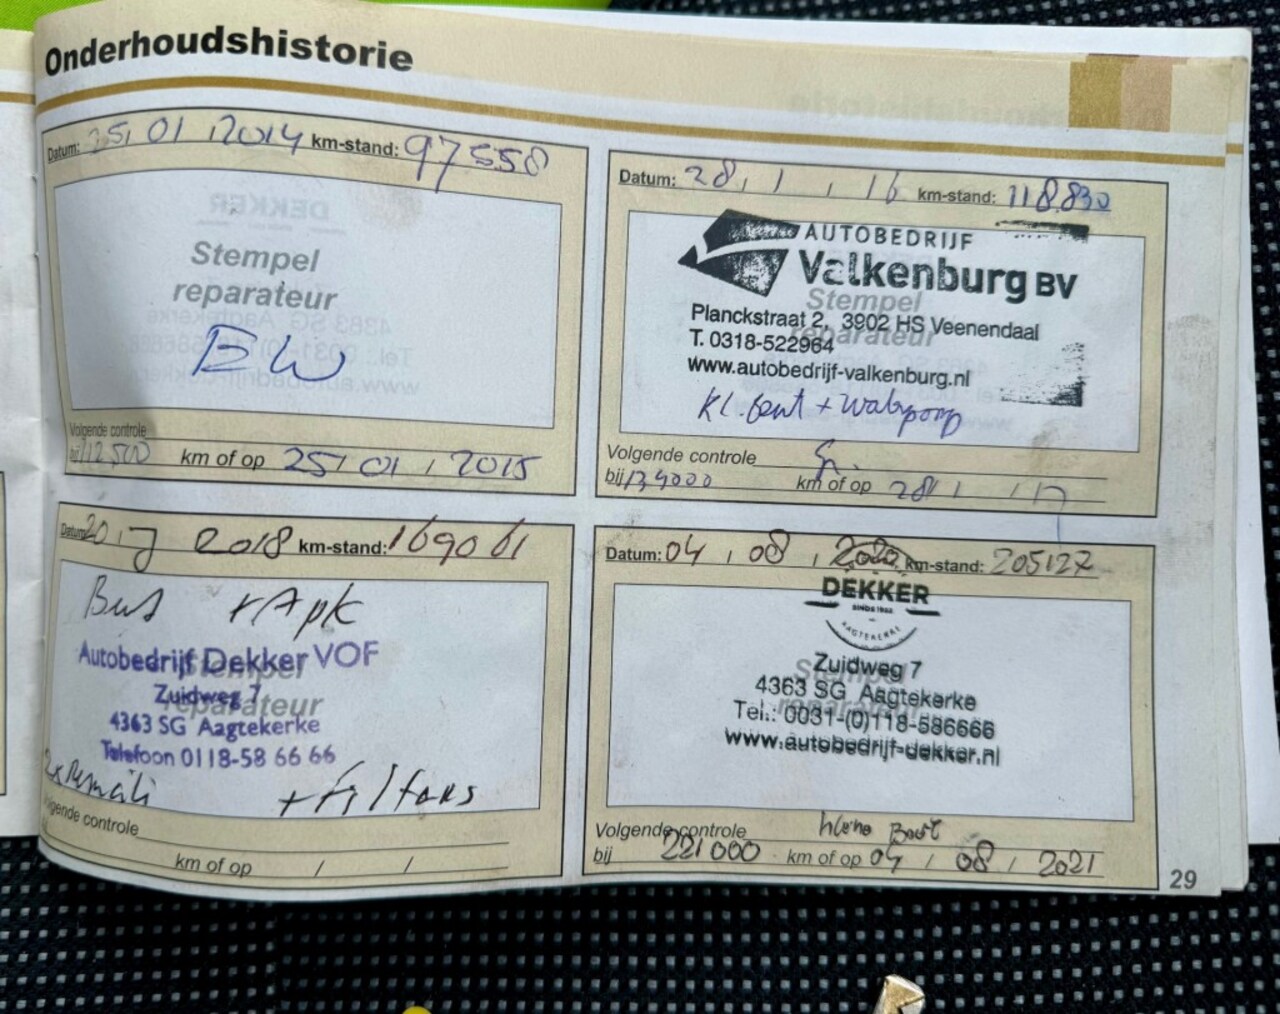 Onderhoudshistorie
Datum: 25, 01, 2014 km-stand: 97558
Stempel
reparateur
Volgende controle
bij 112500 km of op 25, 01, 2015
Datum: 28, 1, 16 km-stand: 118.830
AUTOBEDRIJF
Valkenburg BV
Stempel
reparateur
Planckstraat 2, 3902 HS Veenendaal
T. 0318-522964
www.autobedrijf-valkenburg.nl
Kl. beurt +
Volgende controle
bij 134000 km of op 28, 1, 17
Datum: 20, 7 2018 km-stand: 169061
+ Apk
Autobedrijf Dekker VOF
Stempel
reparateur
Zuidweg 7
4363 SG Aagtekerke
Telefoon 0118-58 66 66
+ filters
Volgende controle
km of op / /
Datum: 04, 08, 2020 km-stand: 205127
DEKKER
SINDS 1988
AAGTEKERKE
Stempel
reparateur
Zuidweg 7
4363 SG Aagtekerke
Tel.: 0031-(0)118-586666
www.autobedrijf-dekker.nl
Volgende controle kleine Beurt
bij 221000 km of op 04, 08, 2021
29